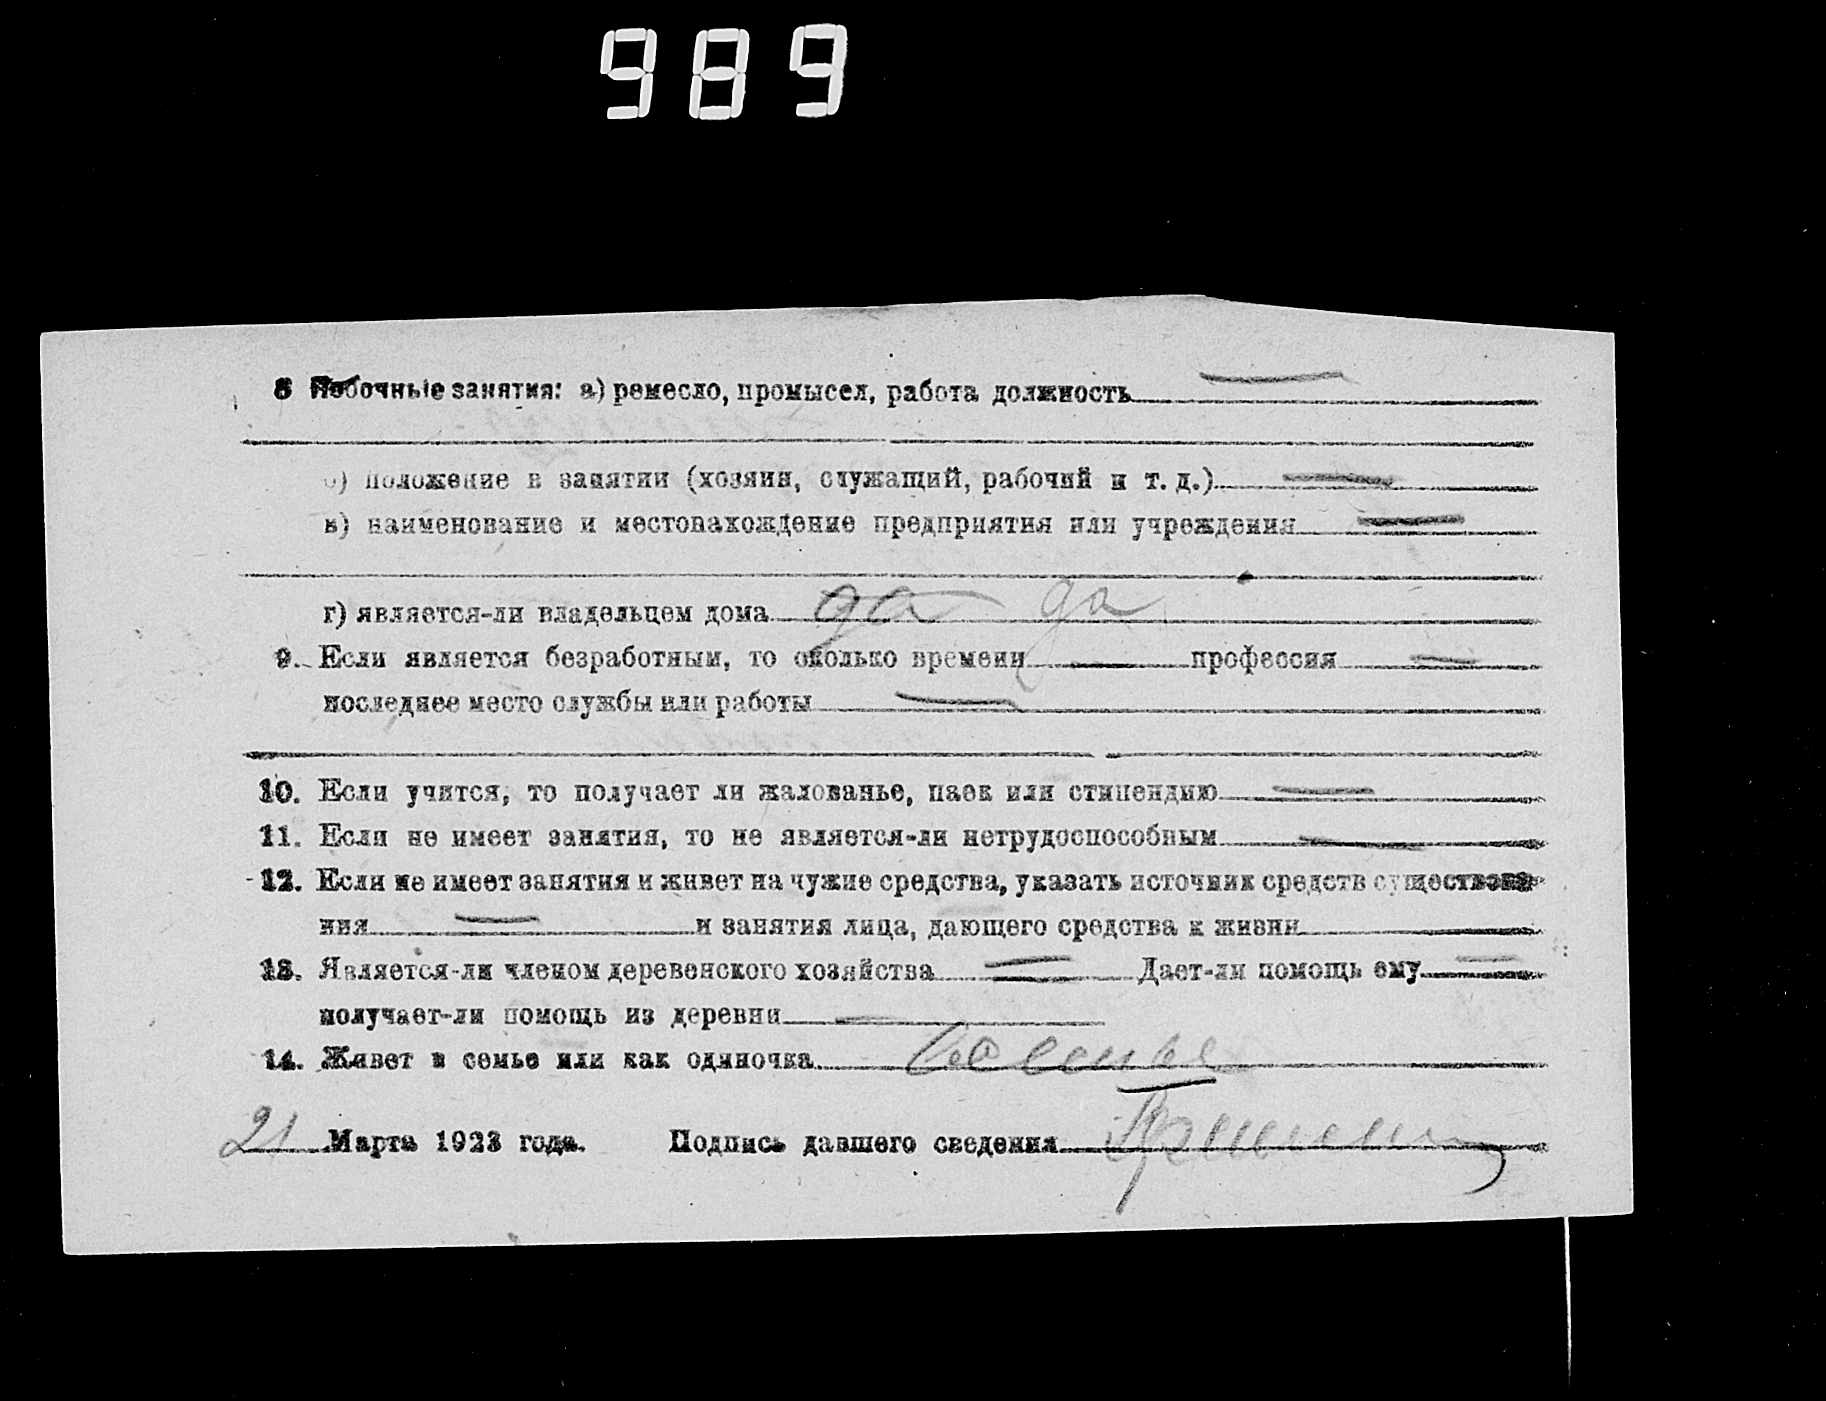 989
8 Побочные занятия: а) ремесло, промысел, работа должность —
б) положение в занятии (хозяин, служащий, рабочий и т. д.) —
в) наименование и местонахождение предприятия или учреждения —
г) является-ли владельцем дома да да
9. Если является безработным, то сколько времени — профессия —
последнее место службы или работы —
10. Если учится, то получает ли жалованье, паек или стипендию —
11. Если не имеет занятия, то не является-ли нетрудоспособным —
12. Если не имеет занятия и живет на чужие средства, указать источник средств существова-
ния — и занятия лица, дающего средства к жизни
13. Является-ли членом деревенского хозяйства — Дает-ли помощь ему —
получает-ли помощь из деревни —
14. Живет в семье или как одиночка семье
21 Марта 1923 года. Подпись давшего сведения